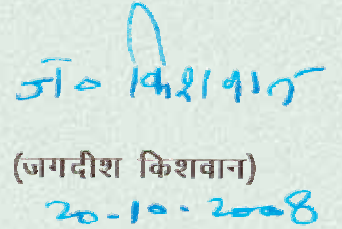 ज॰ किशवान
(जगदीश किशवान)
20-10-2008